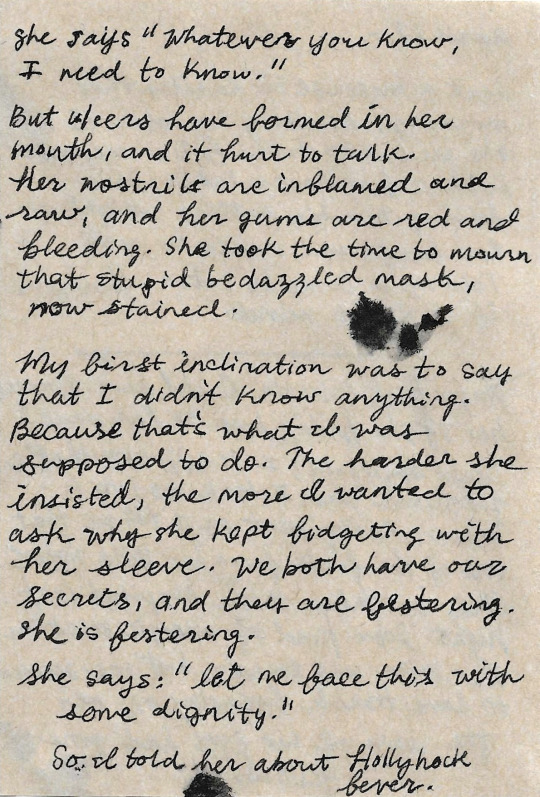 She says "Whatever you know,
I need to know."
But ulcers have formed in her
mouth, and it hurt to talk.
Her nostrils are inflamed and
raw, and her gums are red and
bleeding. She took the time to mourn
that stupid bedazzled mask,
now stained.
My first inclination was to say
that I didn't know anything.
Because that's what I was
supposed to do. The harder she
insisted, the more I wanted to
ask why she kept fidgeting with
her sleeve. We both have our
secrets, and they are festering.
She is festering.
She says: "let me face this with
some dignity."
So I told her about Hollyhock
fever.